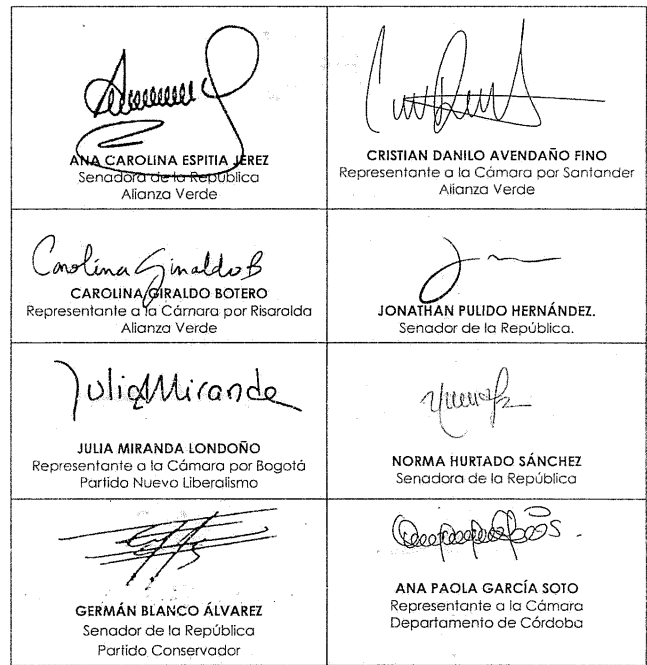 ANA CAROLINA ESPITIA JEREZ
Senadora de la República
Alianza Verde
CRISTIAN DANILO AVENDAÑO FINO
Representante a la Cámara por Santander
Alianza Verde
Carolina Giraldo B
CAROLINA GIRALDO BOTERO
Representante a la Cámara por Risaralda
Alianza Verde
JONATHAN PULIDO HERNÁNDEZ.
Senador de la República.
Julia Miranda
JULIA MIRANDA LONDOÑO
Representante a la Cámara por Bogotá
Partido Nuevo Liberalismo
NORMA HURTADO SÁNCHEZ
Senadora de la República
GERMÁN BLANCO ÁLVAREZ
Senador de la República
Partido Conservador
ANA PAOLA GARCÍA SOTO
Representante a la Cámara
Departamento de Córdoba